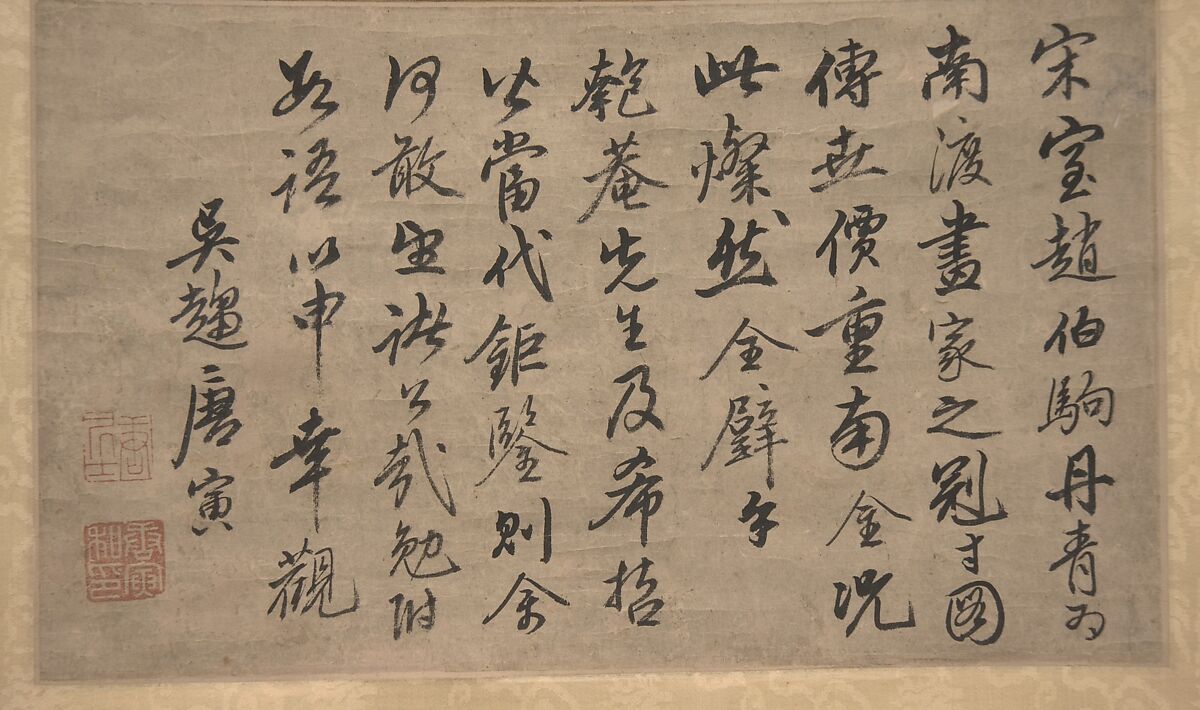 宋室趙伯駒丹青為
南渡畫家之冠寸圖
傳世價重南金況
此燦然全璧乎
匏菴先生及希哲
皆當代鉅鑒則余
何敢望諸公哉勉附
數語以申幸觀
吳趨唐寅
唐寅私印